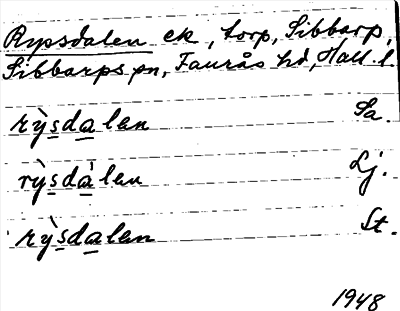 Rypsdalen ek, torp, Sibbarp,
Sibbarps sn, Faurås hd, Hall. l.
rỳsdalen Sa.
rỳsdàlen Lj.
rỳsdalen St.
1948